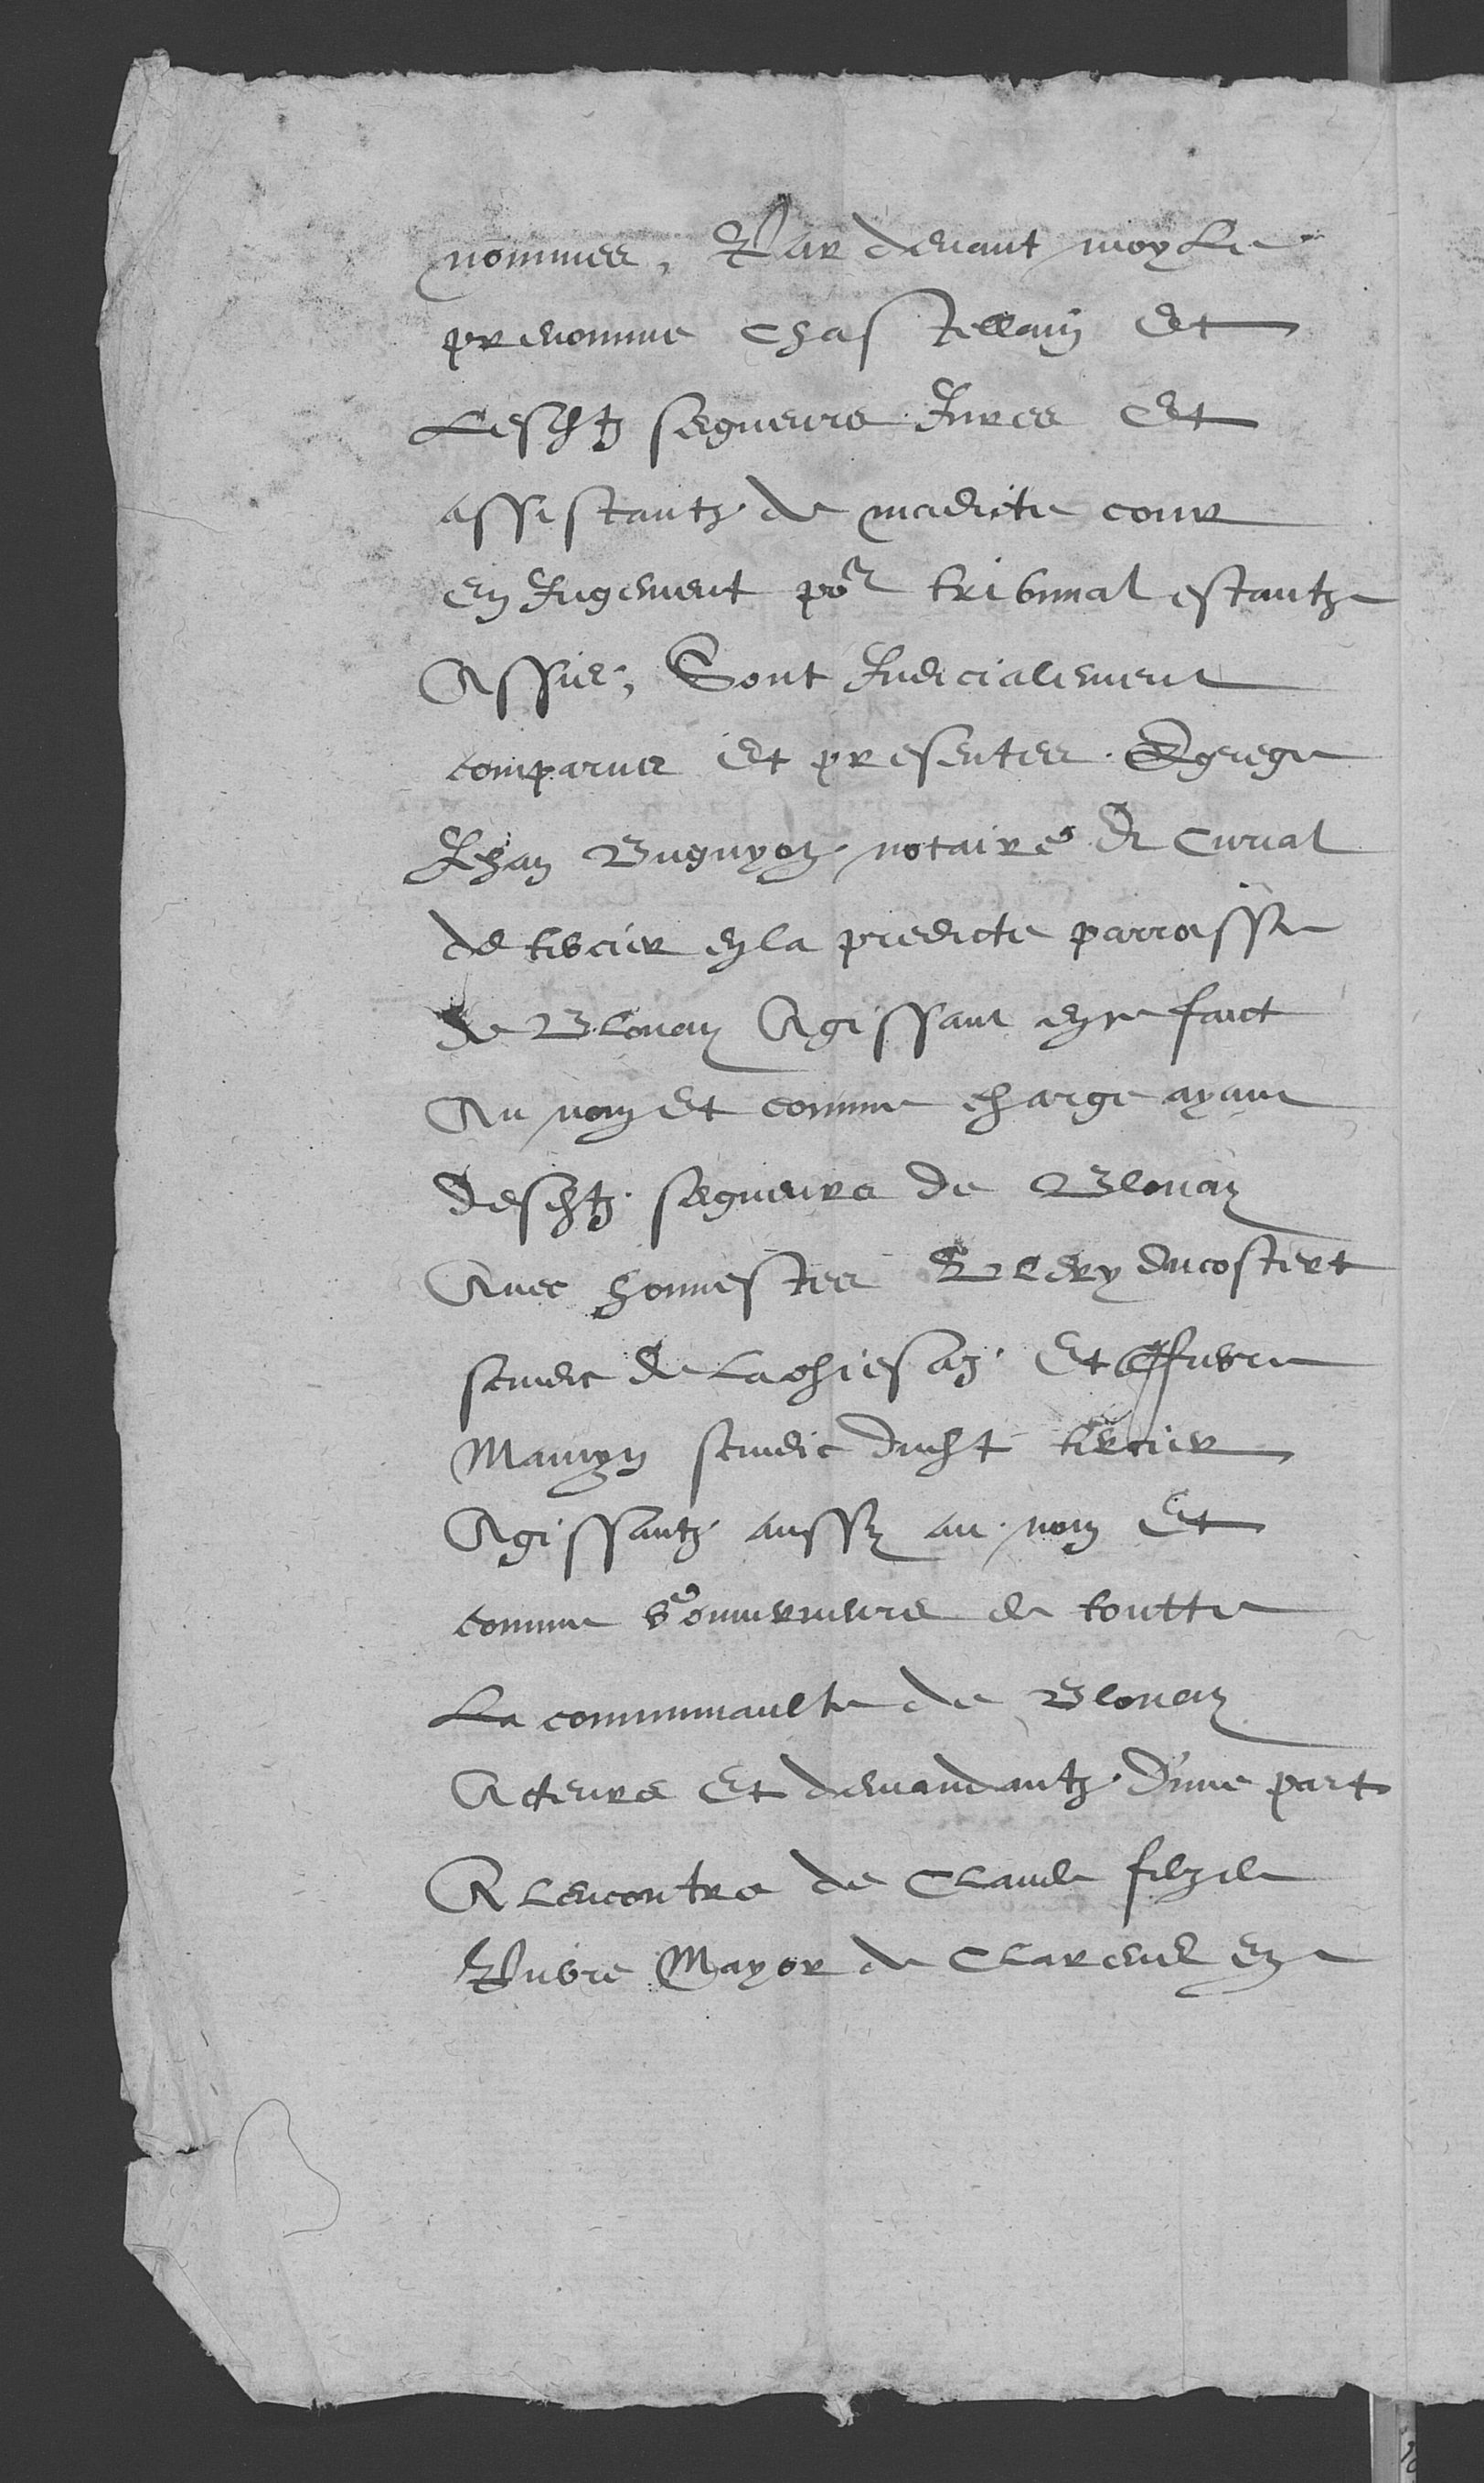 nommes, Par devant moy Le
prenomme Chastellain Et
Lesdtz seigneurs Jures Et
assistantz de madicte cour
en Jugement por tribunal estantz
Assis, Sont Judicialement
comparus Et presentes Egrege
Jehan Bugnyon notaire Et Curial
de tercier en la predicte parroisse
de Blonay Agissant en ce faict
Au nom Et comme charge ayant
desdtz seigneurs de Blonay
Avec honnestes ducostert
sindic de Lachiesaz Et
Mamyn sindic dudt tercier
Agissantz aussy au nom Et
comme Gouverneurs de toutte
La communaulte de Blonay
Acteurs Et demandantz d'une part
A lencontre de Claude filz de
Mayor de Clarens En